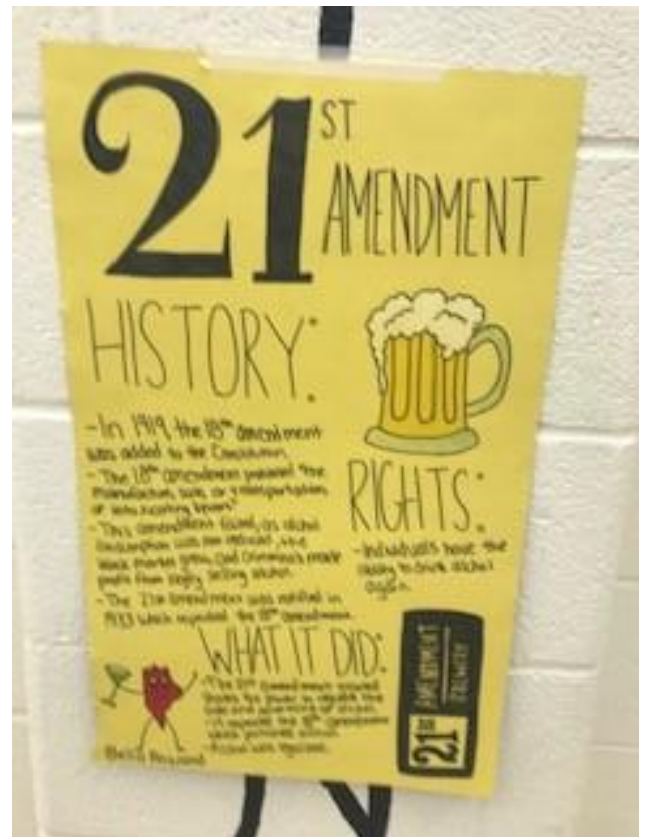 21ST
AMENDMENT
HISTORY:
-In 1919 the 18th amendment
was added to the Constitution.
- The 18th amendment the
manufacture, sale, or transportation
of intoxicating
- This amendment failed, as alcohol
consumption was not reduced, the
black market grew, and criminals made
profit from illegally selling alcohol.
- The 21st amendment was ratified in
1933 which repealed the 18th amendment.
RIGHTS:
-Individuals have the
ability to drink alcohol
again.
WHAT IT DID:
-The 21st amendment
states the power to regulate the
sale and of alcohol.
-It repealed the 18th amendment
which alcohol.
-Alcohol was
21ST
AMENDMENT
BREWERY